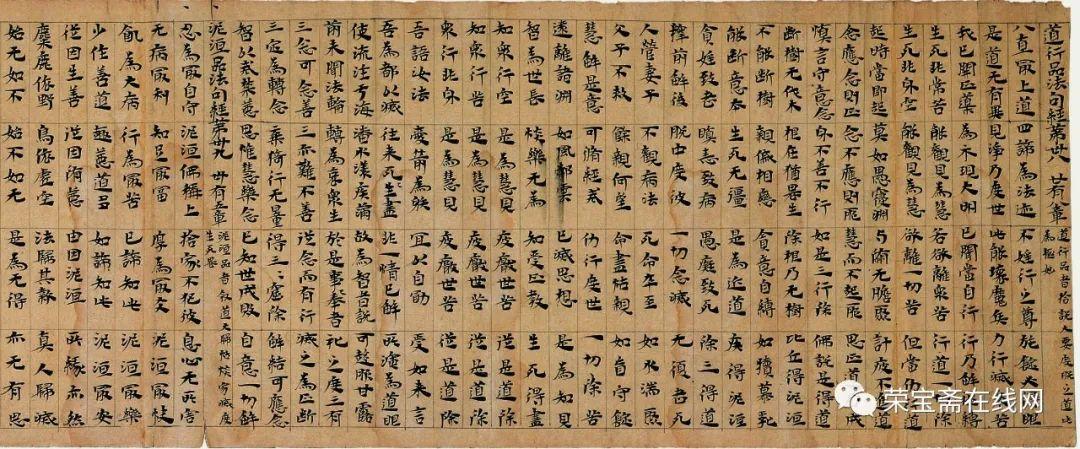 道行品法句經第廿八 廿有八章 道行品者旨說大要度脫之道此為極妙
八直最上道 四諦為法迹 不婬行之尊 施燈必得眼
是道无有畏 見淨乃度世 此能壞魔兵 力行滅耶苦
我已開正道 為示現大明 已聞當自行 行乃解耶縛
生死非常苦 能觀見為慧 若欲離衆苦 行道一切除
生死非身空 能觀見為慧 欲離一切苦 但當勤行道
起時當即起 莫如愚覆淵 与墮无瞻聚 計疲不進道
念應念則正 念不應則耶 慧而不起耶 思正道乃成
慎言守意念 身不善不行 如是三行除 佛說是得道
斷樹无伐本 根在猶復生 除根乃无樹 比丘得泥洹
不能斷樹 親戚相戀 貪意自縛 如犢慕乳
能斷意本 生死无彊 是為近道 疾得泥洹
貪婬致老 瞋恚致病 愚癡致死 除三得道
釋前解後 脫中度彼 一切念滅 无復老死
人營妻子 不觀病法 死命卒至 如水湍驟
父子不救 餘親何望 命盡怙親 如盲守燈
慧解是意 可脩經戒 勤行度世 一切除苦
遠離諸淵 如風却雲 已滅思想 是為知見
智為世長 惔樂无為 知受正教 生死得盡
知衆行空 是為慧見 疲厭世苦 從是道除
知衆行苦 是為慧見 疲厭世苦 從是道除
衆行非身 是為慧見 疲厭世苦 從是道除
吾語汝法 愛箭為射 宜以自勖 受如來言
吾為都以滅 往來死生盡 非一情已解 所演為道眼
使流注于海 潘水漾疾滿 故為智者說 可趣服甘露
前未聞法輪 轉為哀衆生 於是奉事者 礼之度三有
三念可念善 三亦難不善 從念而有行 滅之為正斷
三定為轉念 棄猗行无量 得三三窟除 解結可應念
智以戒禁惡 思惟慧樂念 已知世成敗 自意一切解
泥洹品法句經第卅九 卅有五章 泥洹品者叙道大歸恬惔寂滅度生死畏
忍為最自守 泥洹佛稱上 捨家不犯彼 息心无所害
无病最利 知足最富 厚為最友 泥洹最快
飢為大病 行為最苦 已諦知此 泥洹最樂
少往善道 趣惡道多 如諦知此 泥洹最安
從因生善 從因墮惡 由因泥洹 所緣亦然
麋鹿依野 鳥依虛空 法歸其報 真人歸滅
始无如不 始不如无 是為无得 亦无有思
荣宝斋在线网